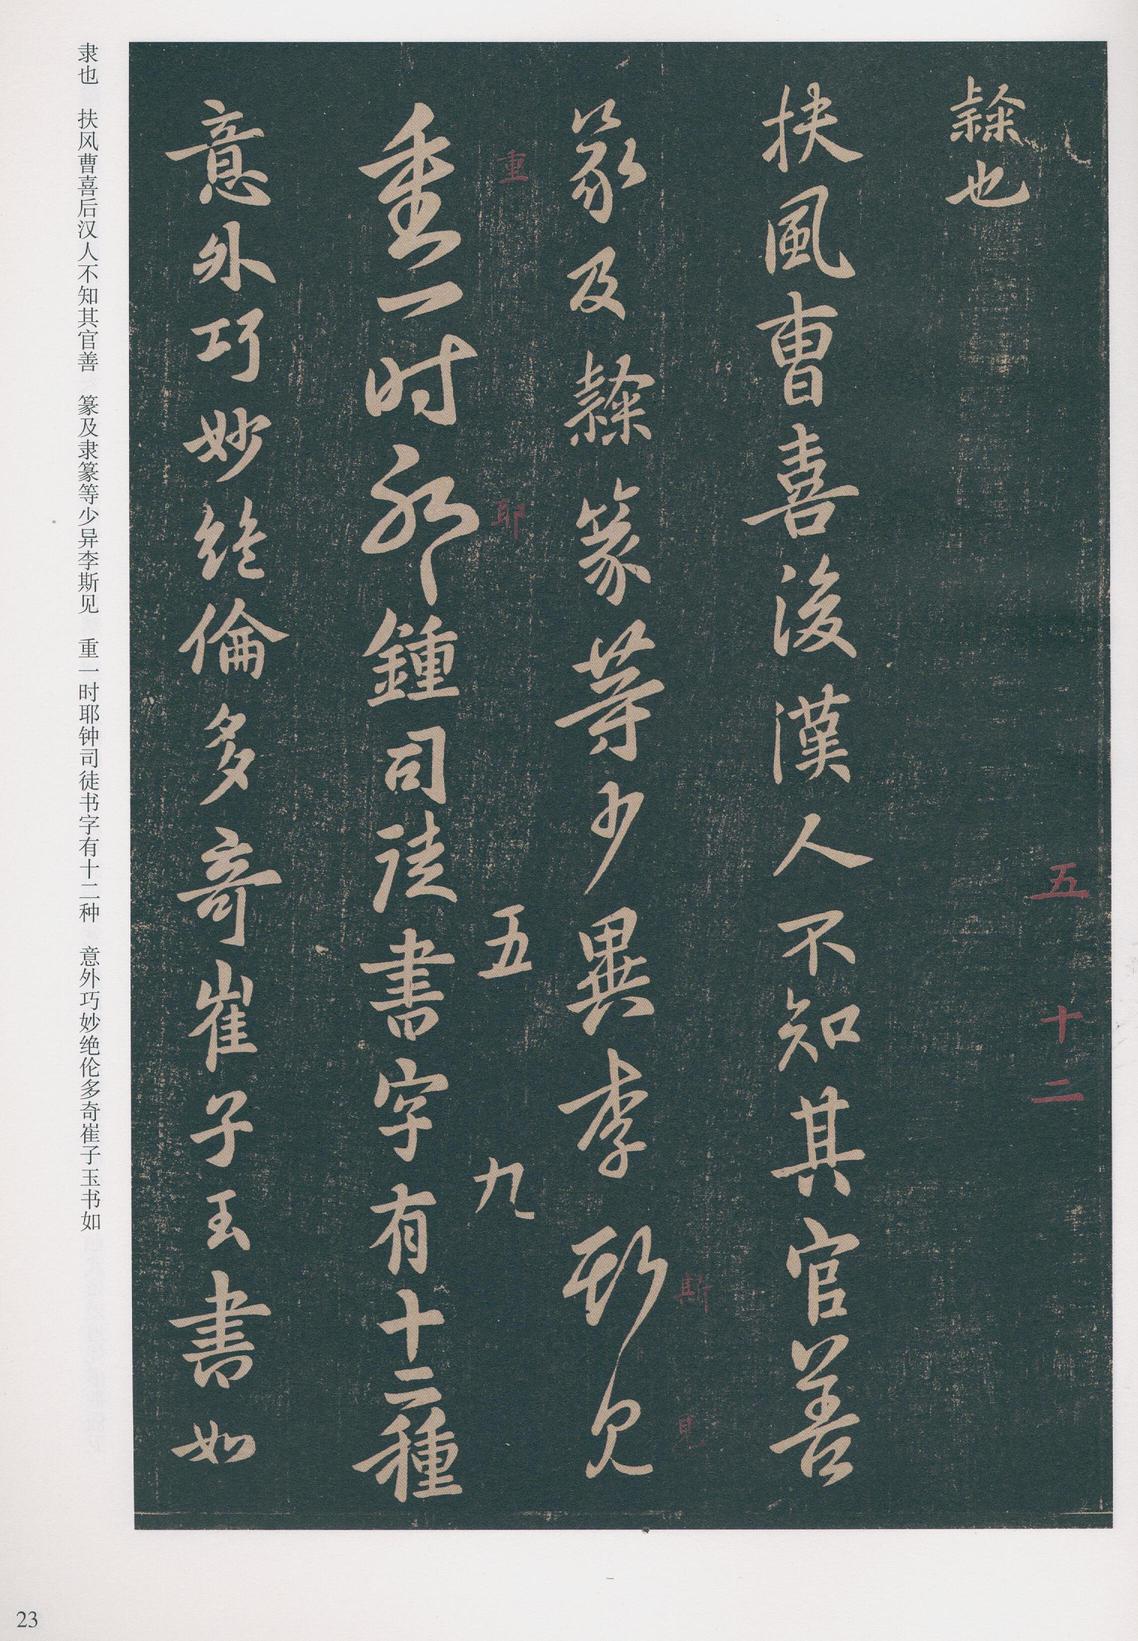 隸也
扶風曹喜後漢人不知其官善
篆及隸篆等少異李斯見
重一时耶鍾司徒書字有十二種
意外巧妙絶倫多奇崔子玉書如
五
十
二
斯
見
重
耶
五
九
隶也 扶风曹喜后汉人不知其官善 篆及隶篆等少异李斯见 重一时耶钟司徒书字有十二种 意外巧妙绝伦多奇崔子玉书如
23